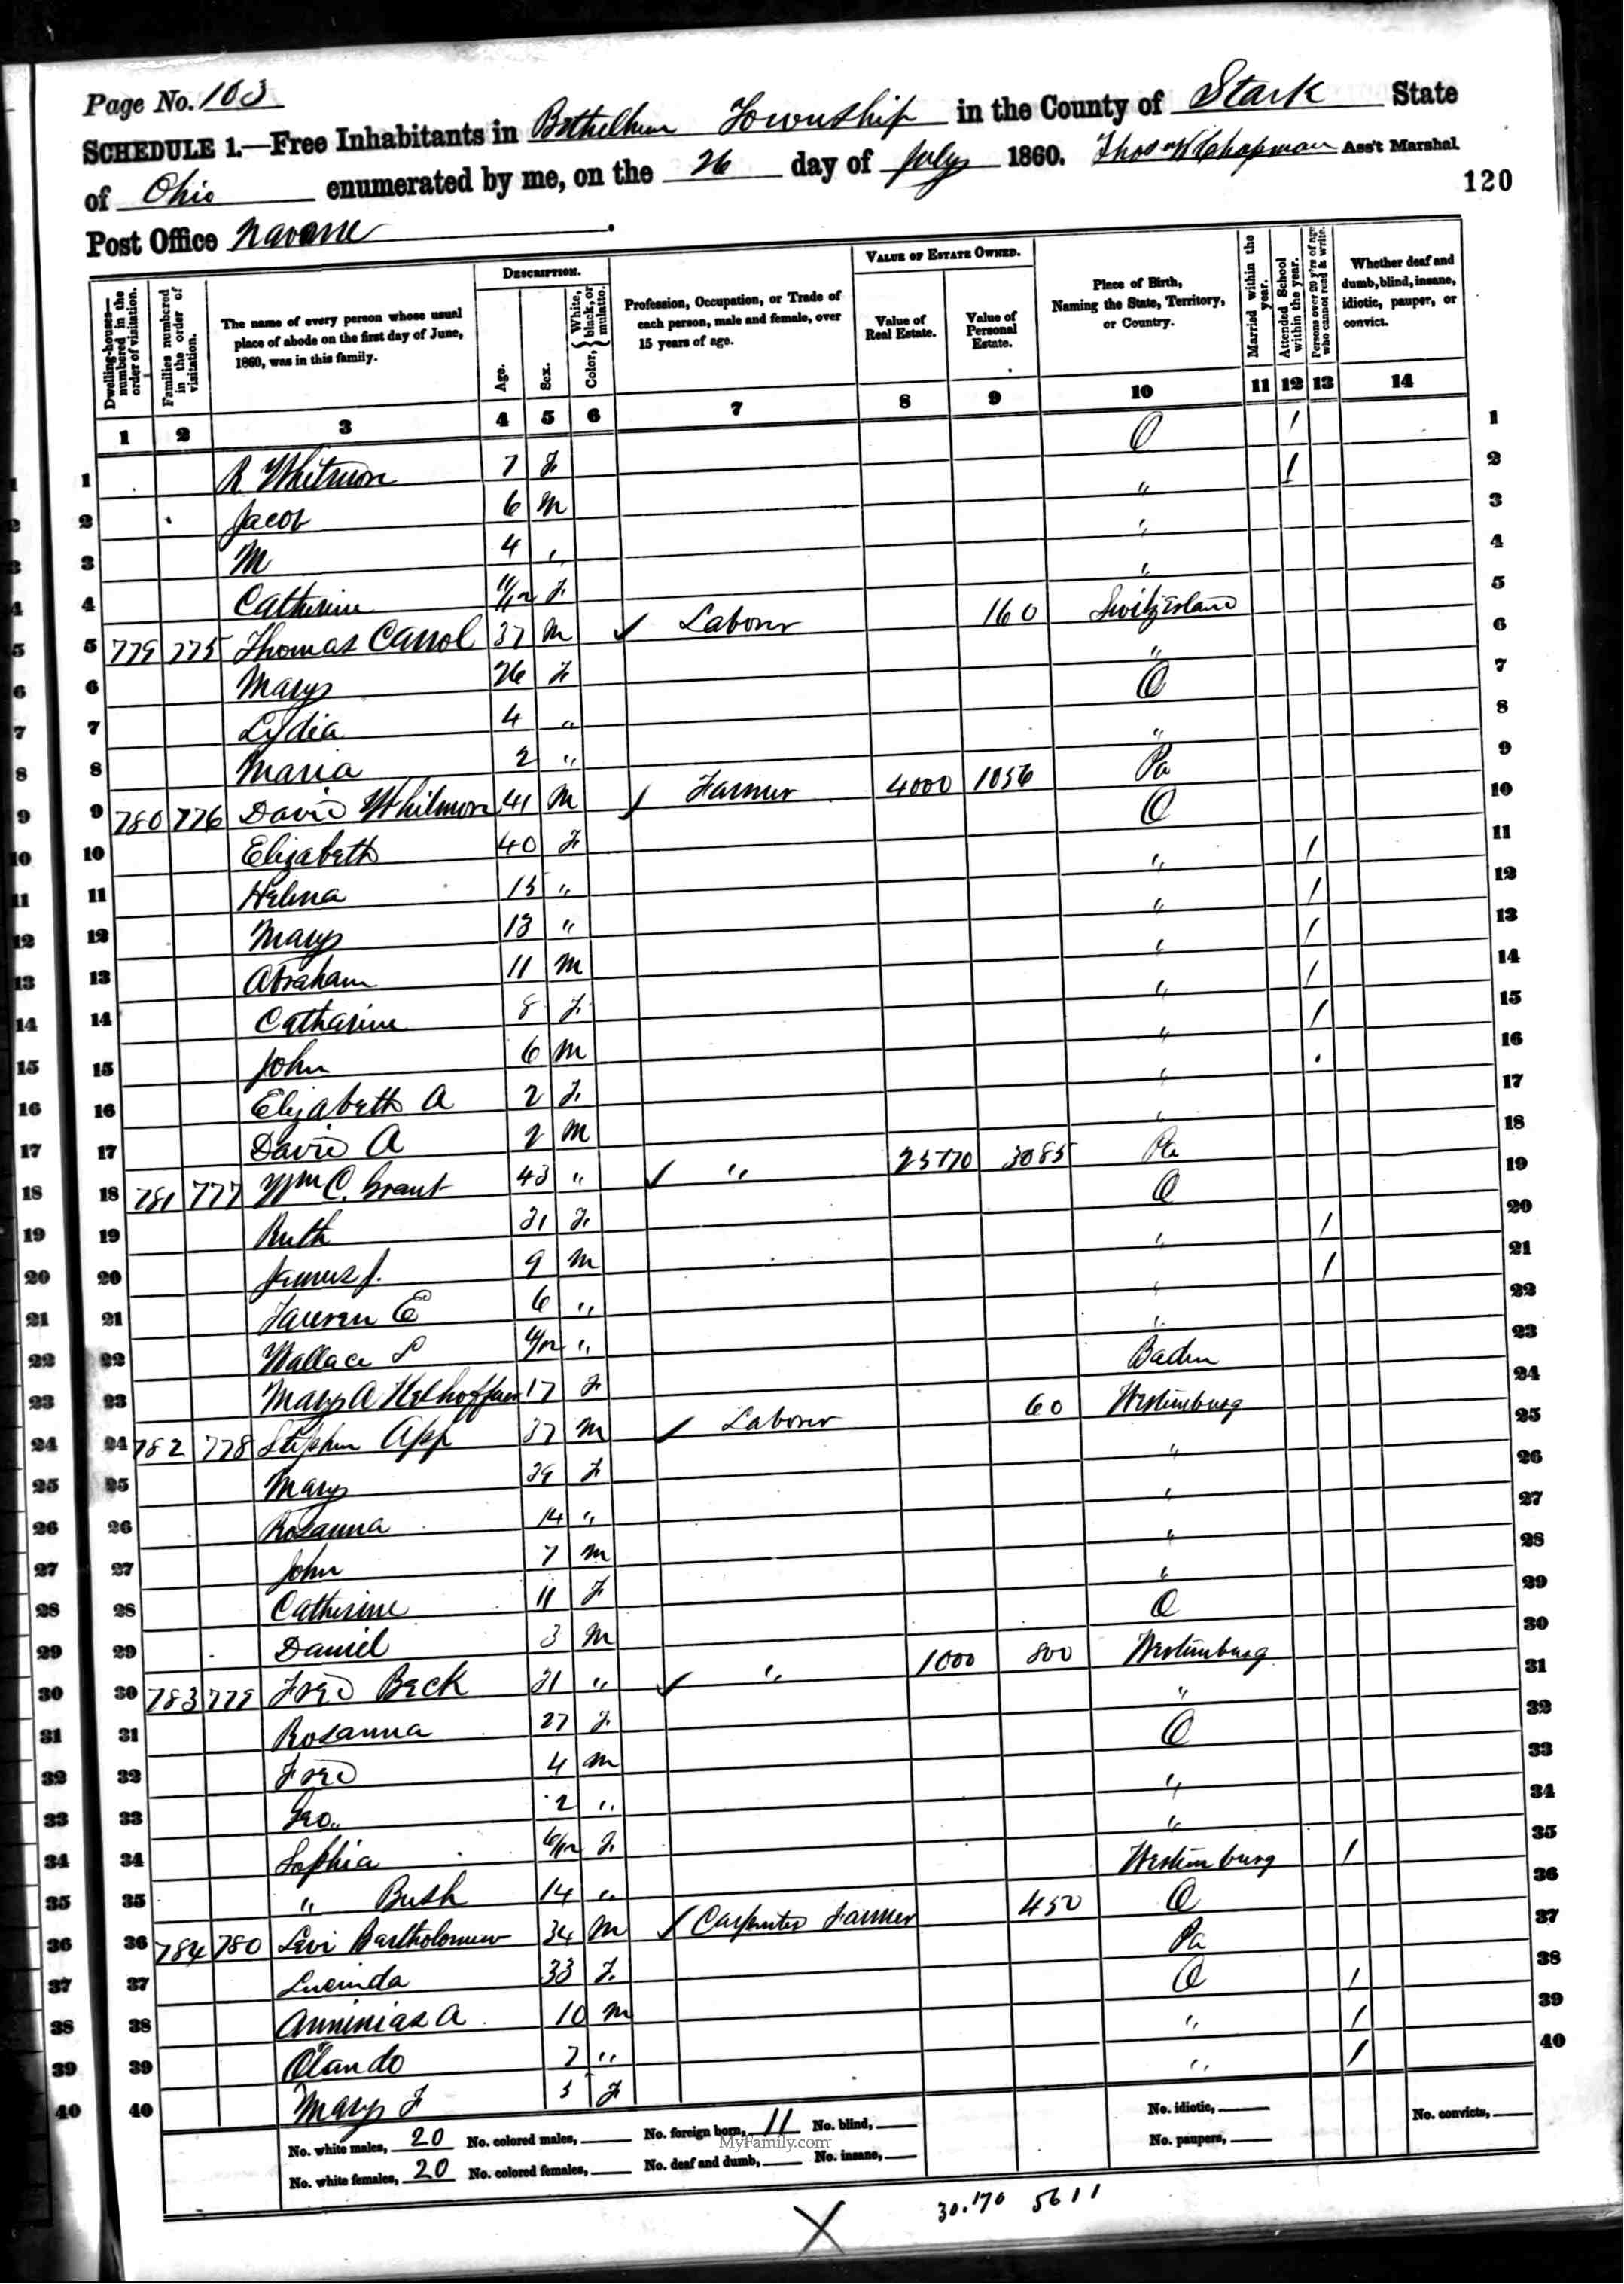 Page No. 103
SCHEDULE 1.—Free Inhabitants in Bethlhem Township in the County of Stark State
of Ohio enumerated by me, on the 26 day of July 1860. Thos W Chapman Ass't Marshal.
120
Post Office Navarre.
DESCRIPTION.
VALUE OF ESTATE OWNED.
Dwelling-houses—numbered in the order of visitation.
Families numbered in the order of visitation.
The name of every person whose usual place of abode on the first day of June, 1860, was in this family.
Age.
Sex.
Color, { White, black, or mulatto.
Profession, Occupation, or Trade of each person, male and female, over 15 years of age.
Value of Real Estate.
Value of Personal Estate.
Place of Birth, Naming the State, Territory, or Country.
Married within the year.
Attended School within the year.
Persons over 20 y'rs of age who cannot read & write.
Whether deaf and dumb, blind, insane, idiotic, pauper, or convict.
1 2 3 4 5 6 7 8 9 10 11 12 13 14
1 R Whitmore 7 F O / 1
2 Jacob 6 M " / 2
3 M 4 " " 3
4 Catherine 11/12 F " 4
5 779 775 Thomas Carrol 37 M ✓ Laborer 160 Switzerland 5
6 Mary 26 F " 6
7 Lydia 4 " O 7
8 Maria 2 " " 8
9 780 776 David Whitmore 41 M ✓ Farmer 4000 1056 Pa 9
10 Elizabeth 40 F O 10
11 Helena 15 " " / 11
12 Mary 13 " " / 12
13 Abraham 11 M " / 13
14 Catharine 8 F " / 14
15 John 6 M " / 15
16 Elizabeth A 2 F " 16
17 David A 2 M " 17
18 781 777 Wm C. Grant 43 " ✓ " 25170 3085 Pa 18
19 Ruth 31 F O 19
20 James J. 9 M " / 20
21 E 6 " " / 21
22 Wallace S " " 22
23 Mary A 17 F Baden 23
24 782 778 Stephen App 37 M ✓ Laborer 60 Westimburg 24
25 Mary 39 F " 25
26 Rosanna 14 " " 26
27 John 7 M " 27
28 Catherine 11 F " 28
29 Daniel 3 M O 29
30 783 779 Fred Beck 31 " ✓ " 1000 800 Westimburg 30
31 Rosanna 27 F " 31
32 Fred 4 M O 32
33 Geo. 2 " " 33
34 Sophia 6/12 F " 34
35 " Bush 14 " Westimburg / 35
36 784 780 Levi Bartholomew 34 M ✓ Carpenter Farmer 450 O 36
37 Lucinda 33 F Pa 37
38 Anninias A 10 M O / 38
39 Olando 7 " " / 39
40 Mary F 5 F " / 40
No. white males, 20 No. colored males, No. foreign born, 11 No. blind, No. idiotic, No. convicts,
No. white females, 20 No. colored females, No. deaf and dumb, No. insane, No. paupers,
MyFamily.com
30.170 5611
X